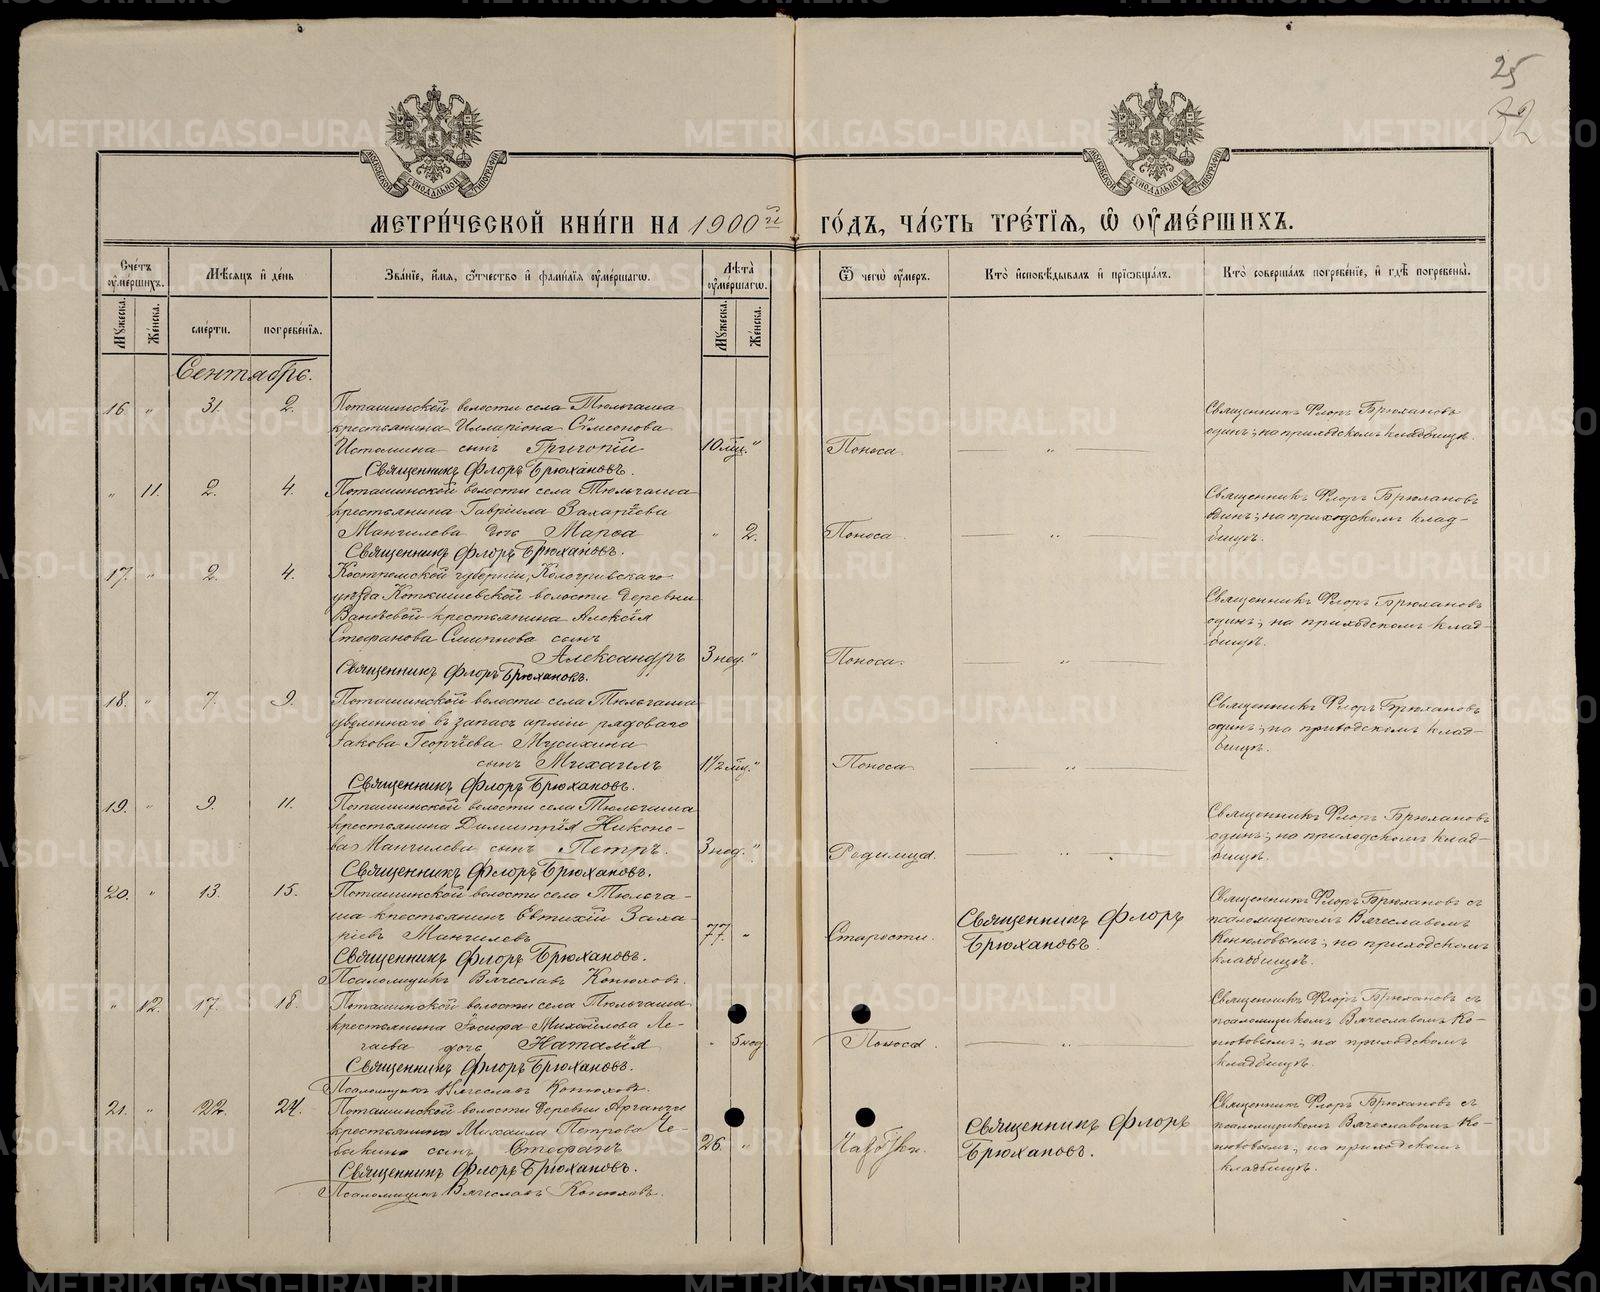 25
72
МЕТРИ́ЧЕСКОЙ КНИ́ГИ НА 1900й ГО́ДЪ, ЧА́СТЬ ТРЕ́ТЇѦ, Ѡ ОУМЕ́РШИХЪ.
Сче́тъ оуме́ршихъ.
Мѣ́сѧцъ и де́нь
Зва́нїе, и́мѧ, ѻ҆́тчество и фами́лїѧ оуме́ршагѡ.
Лѣ́та оуме́ршагѡ.
Ѿ чегѡ̀ оу́меръ.
Кто̀ и҆сповѣ́дывалъ и прїѡбща́лъ.
Кто̀ соверша́лъ погребе́нїе, и гдѣ̀ погребены̀.
Мꙋ́жеска.
Же́нска.
сме́рти.
погребе́нїѧ.
Мꙋ́жеска.
Же́нска.
Сентябрь.
16. " 31. 2. Поташинской волости села Тюльгаша
крестьянина Иллариона Симеонова
Истомина сынъ Григорій 10 мѣц. " Поноса — " —
Священникъ Флоръ Брюхановъ.
Священникъ Флоръ Брюхановъ
одинъ; на приходскомъ кладбищѣ.
" 11. 2. 4. Поташинской волости села Тюльгаша
крестьянина Гавріила Захаріева
Мангилева дочь Марѳа " 2. Поноса — " —
Священникъ Флоръ Брюхановъ.
Священникъ Флоръ Брюхановъ
одинъ; на приходскомъ клад-
бищѣ.
17. " 2. 4. Костромской губерніи, Кологривскаго
уѣзда волости деревни
крестьянина Алексія
Стефанова Смирнова сынъ
Александръ 3 нед. " Поноса. — " —
Священникъ Флоръ Брюхановъ.
Священникъ Флоръ Брюхановъ
одинъ; на приходскомъ клад-
бищѣ.
18. " 7. 9. Поташинской волости села Тюльгаша
уволеннаго въ запасъ арміи рядоваго
Іакова Георгіева Мусихина
сынъ Михаилъ 1½ мѣц. " Поноса — " —
Священникъ Флоръ Брюхановъ.
Священникъ Флоръ Брюхановъ
одинъ; на приходскомъ клад-
бищѣ.
19. " 9. 11. Поташинской волости села Тюльгаша
крестьянина Димитрія Никоно-
ва Мангилева сынъ Петръ. 3 нед. " Родимца. — " —
Священникъ Флоръ Брюхановъ.
Священникъ Флоръ Брюхановъ
одинъ; на приходскомъ клад-
бищѣ.
20. " 13. 15. Поташинской волости села Тюльга-
ша крестьянинъ Евтихій Заха-
ріевъ Мангилевъ 77. " Старости.
Священникъ Флоръ Брюхановъ.
Псаломщикъ Вячеславъ Конюховъ.
Священникъ Флоръ
Брюхановъ.
Священникъ Флоръ Брюхановъ съ
псаломщикомъ Вячеславомъ
Конюховымъ; на приходскомъ
кладбищѣ.
" 12. 17. 18. Поташинской волости села Тюльгаша
крестьянина Іосифа Михайлова Ле-
гаева дочь Наталія " 5 нед. Поноса. — " —
Священникъ Флоръ Брюхановъ.
Псаломщикъ Вячеславъ Конюховъ.
Священникъ Флоръ Брюхановъ съ
псаломщикомъ Вячеславомъ Ко-
нюховымъ; на приходскомъ
кладбищѣ.
21. " 22. 24. Поташинской волости деревни Артанчи
крестьянина Михаила Петрова Че-
бакина сынъ Стефанъ 26. " Чахотки.
Священникъ Флоръ Брюхановъ.
Псаломщикъ Вячеславъ Конюховъ.
Священникъ Флоръ
Брюхановъ.
Священникъ Флоръ Брюхановъ съ
псаломщикомъ Вячеславомъ Ко-
нюховымъ; на приходскомъ
кладбищѣ.
METRIKI.GASO-URAL.RU